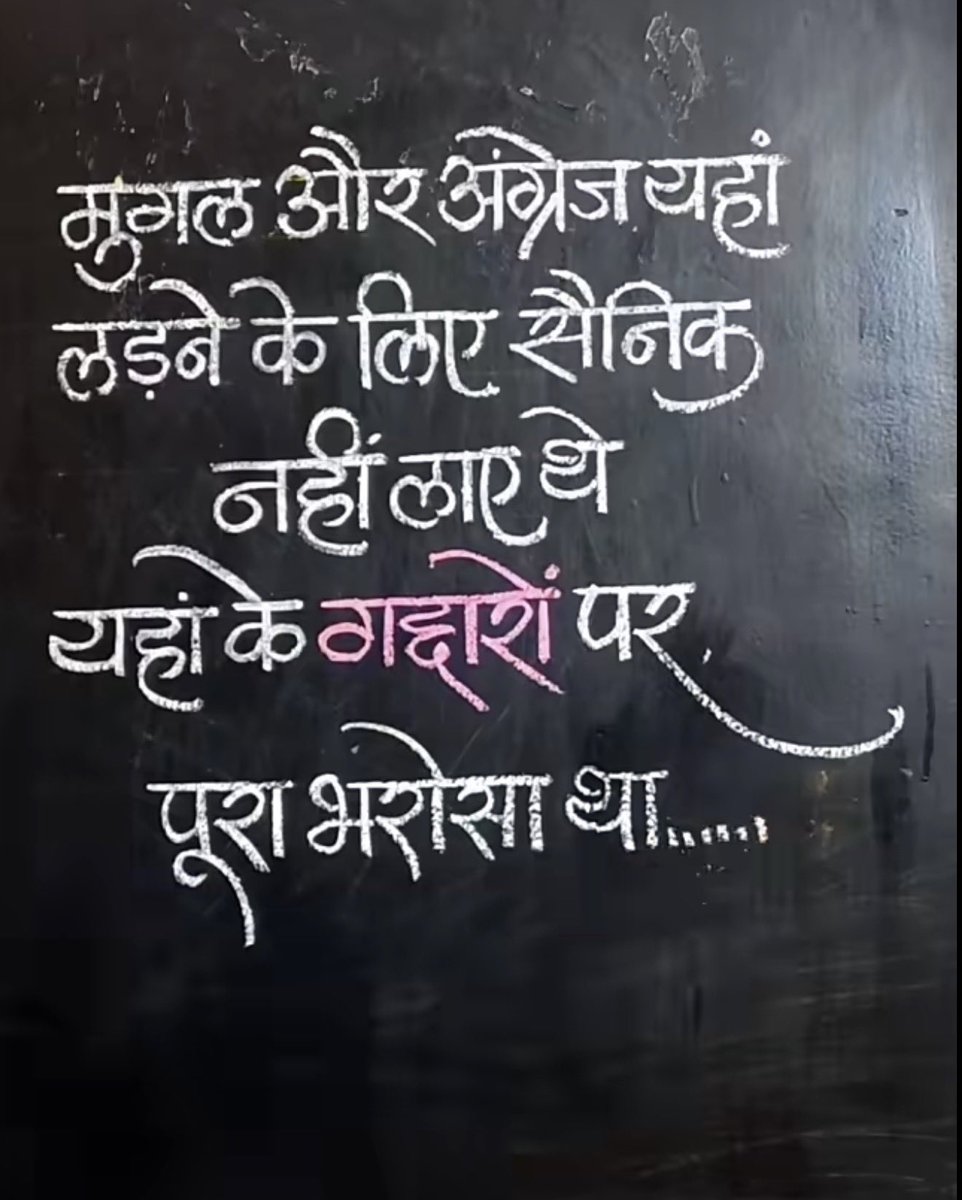 मुगल और अंग्रेज यहां
लड़ने के लिए सैनिक
नहीं लाए थे
यहां के गद्दारों पर
पूरा भरोसा था.......